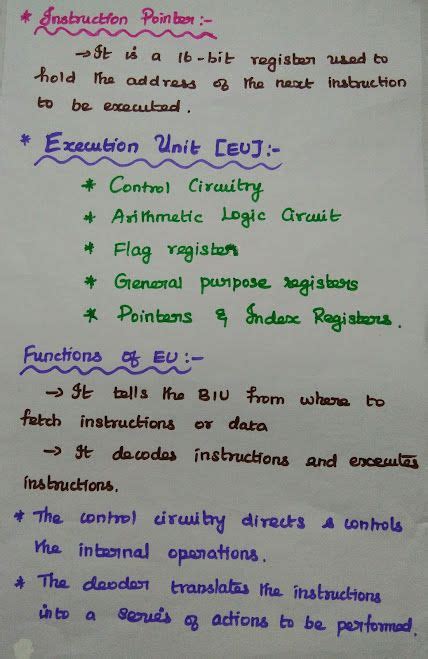 * Instruction Pointer :-
→ It is a 16-bit register used to
hold the address of the next instruction
to be executed.
* Execution Unit [EU] :-
* Control Circuitry
* Arithmetic Logic Circuit
* Flag register
* General purpose registers
* Pointers & Index Registers.
Functions of EU :-
→ It tells the BIU from where to
fetch instructions or data
→ It decodes instructions and executes
instructions.
* The control circuitry directs & controls
the internal operations.
* The deoder translates the instructions
into a series of actions to be performed.